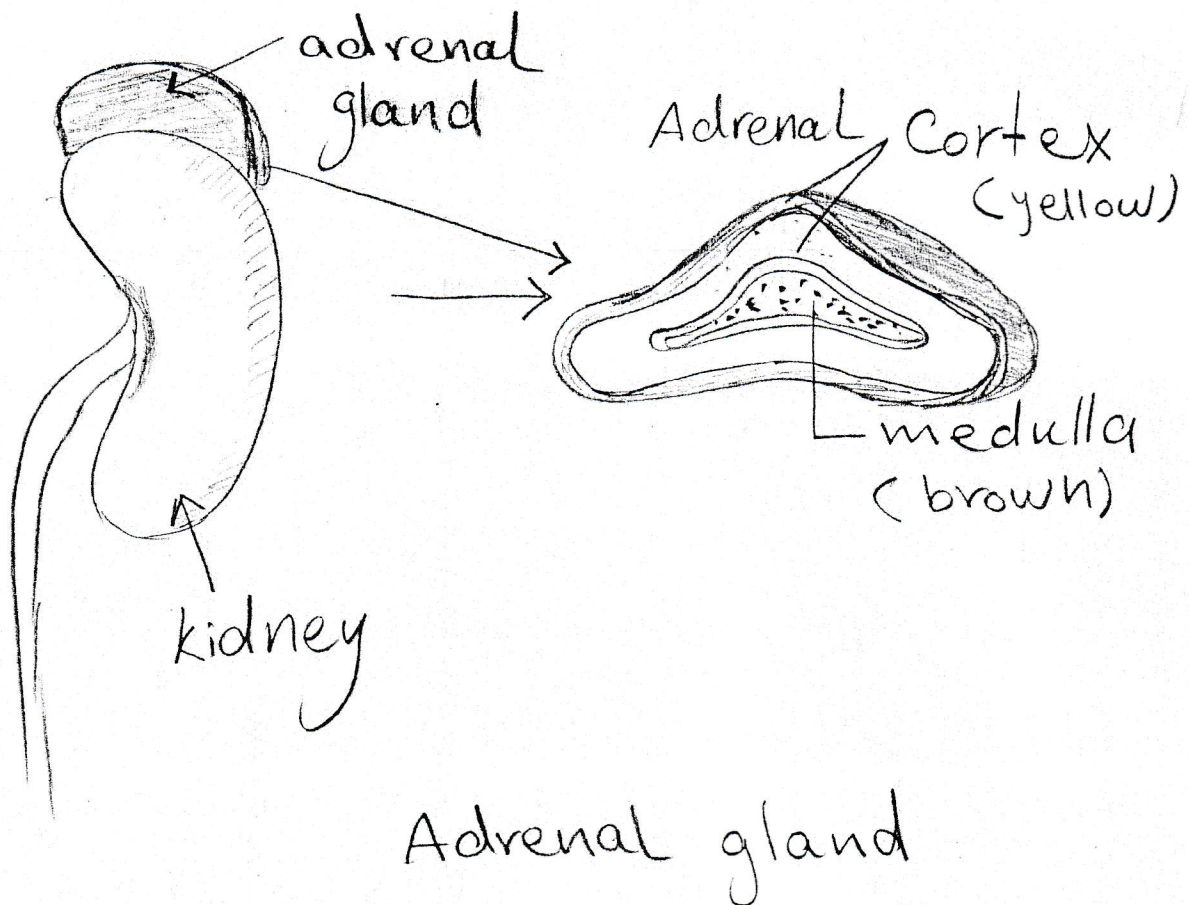 adrenal
gland
Adrenal Cortex
(yellow)
medulla
(brown)
kidney
Adrenal gland